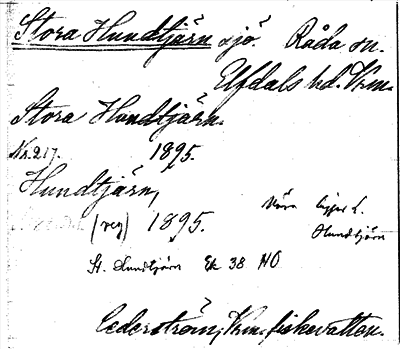 Stora Hundtjärn sjö. Råda sn.
Elfdals hd. Vrm.
Stora Hundtjärn.
Nr. 217. 1895.
Hundtjärn,
(reg) 1895.
Norra ligger L.
Hundtjärn
St. Hundtjärn Ek 38 NO
Cederström, Vrm. fiskevatten.